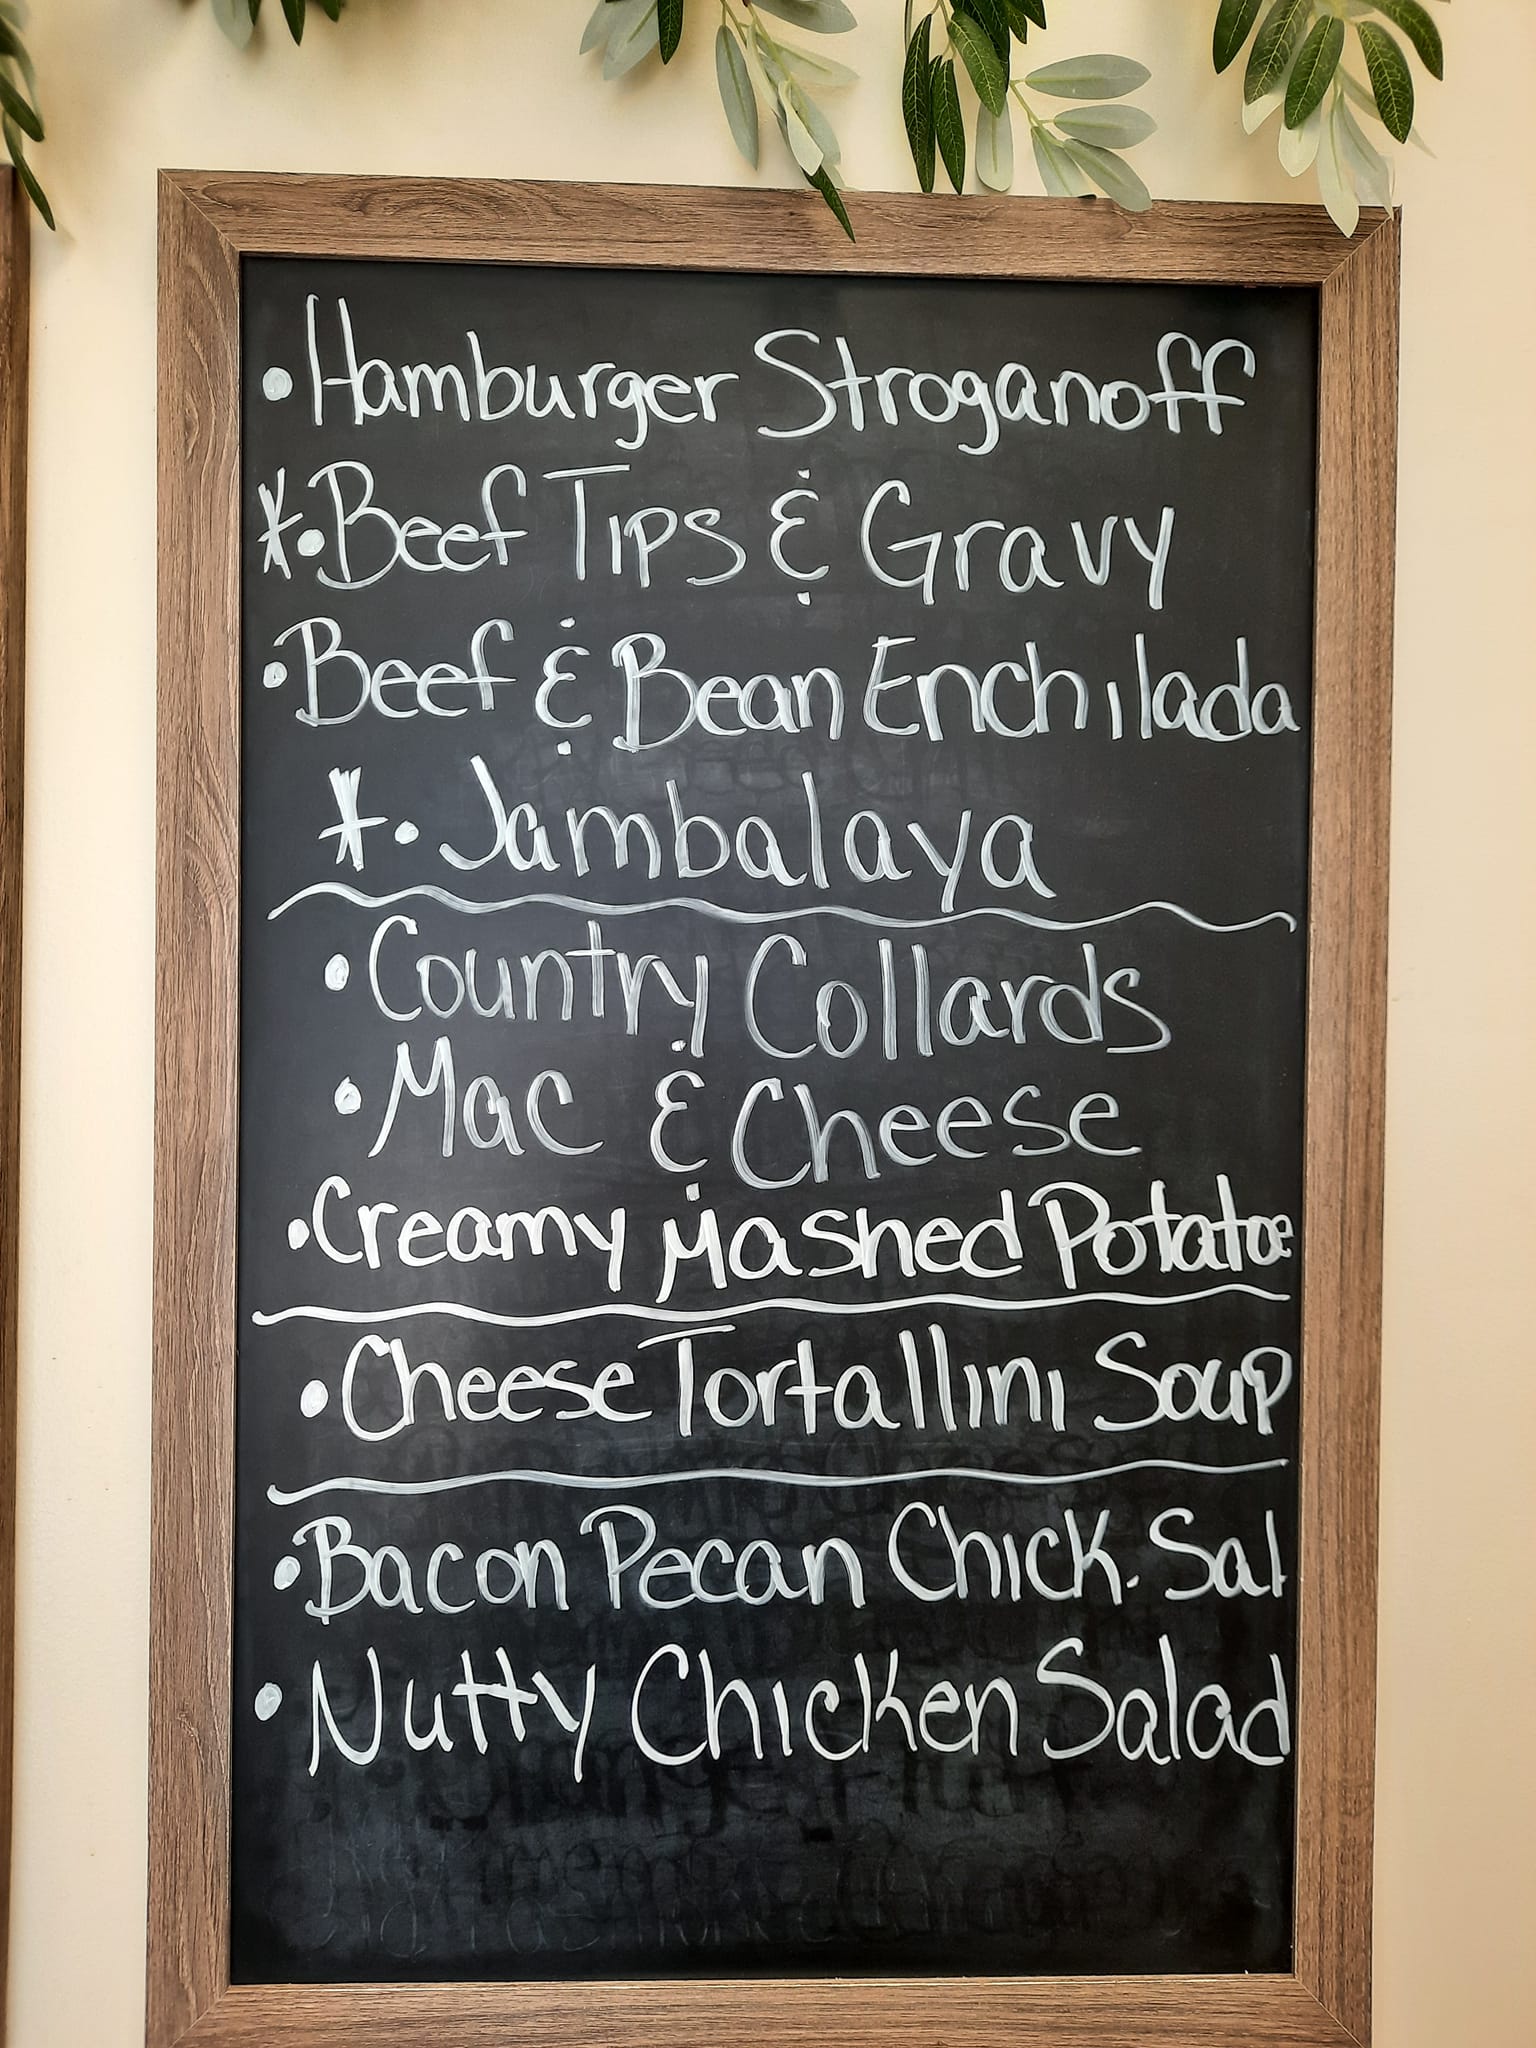 • Hamburger Stroganoff
*• Beef Tips & Gravy
• Beef & Bean Enchilada
*• Jambalaya
• Country Collards
• Mac & Cheese
• Creamy Mashed Potatoe
• Cheese Tortallini Soup
• Bacon Pecan Chick. Sal
• Nutty Chicken Salad